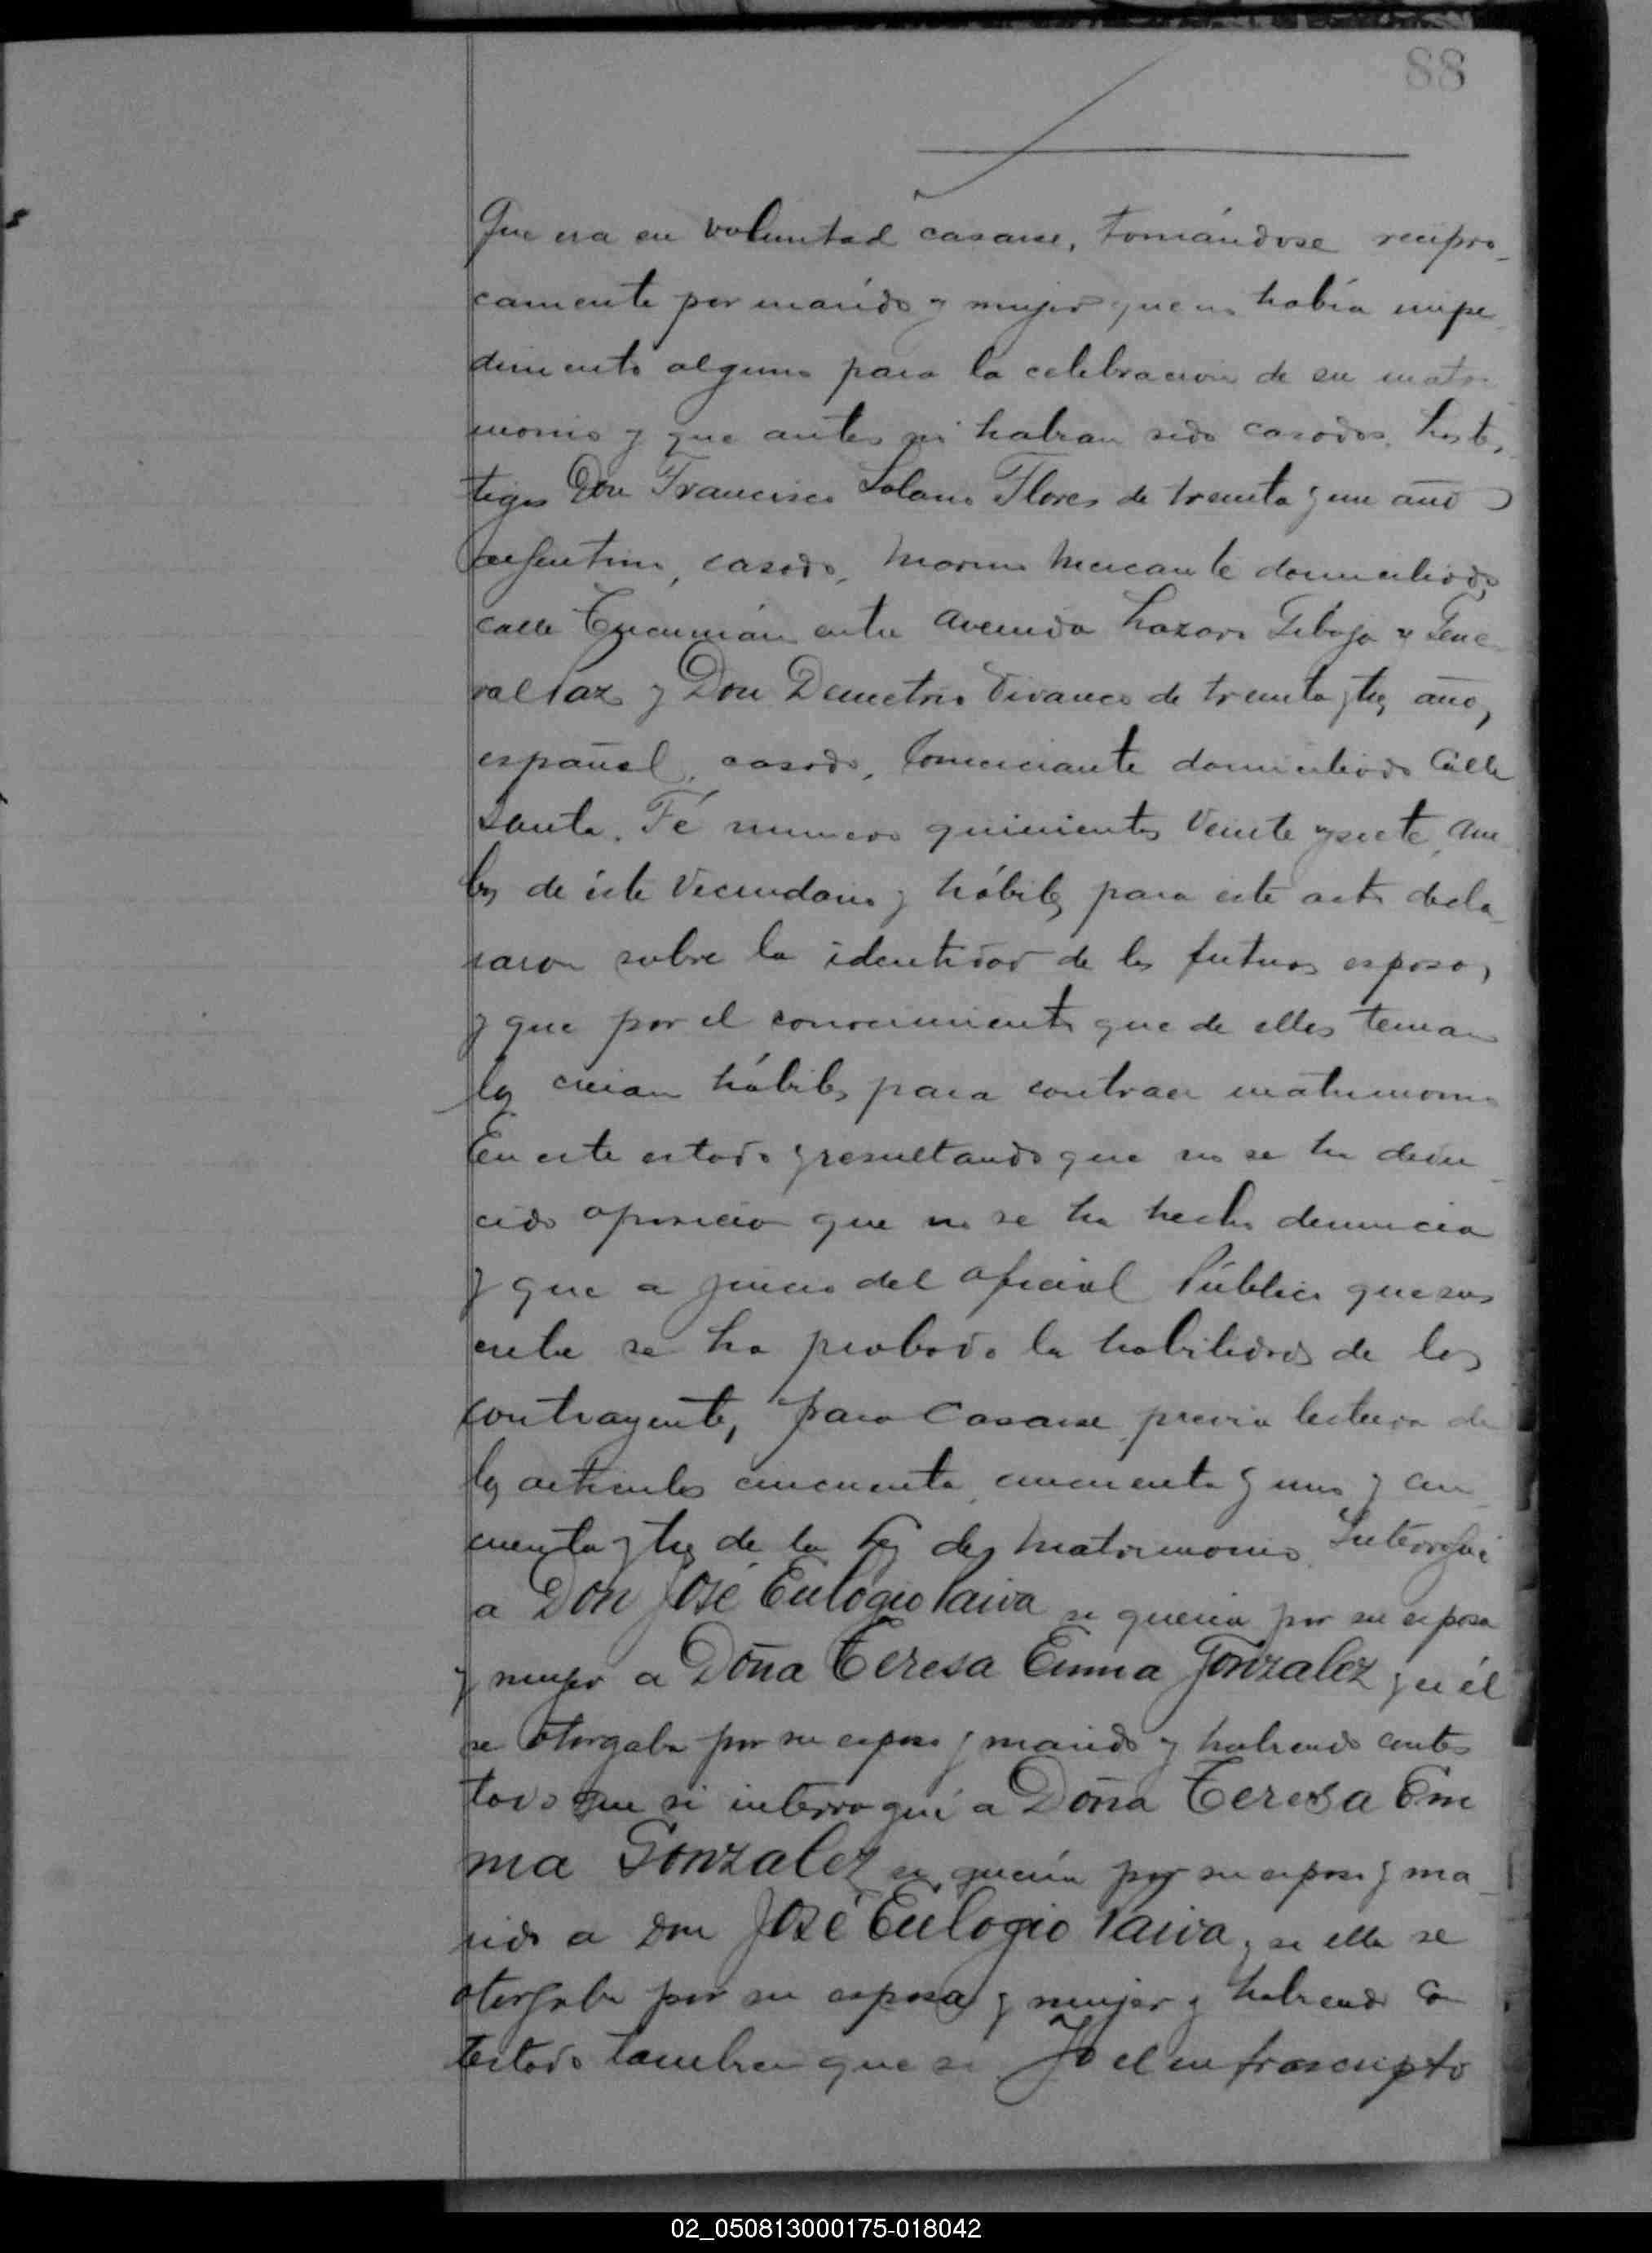 88
Que era su voluntad casarse, tomándose recipro-
camente por marido y mujer que no había impe-
dimento alguno para la celebracion de su matri-
monio y que antes no habian sido casados. Los tes-
tigos Don Francisco Solano Flores de treinta y un años
argentino, casado, Marino Mercante domiciliado
calle Tucumán entre Avenida Lazaro Gibaja y Gene-
ral Paz y Don Demetrio Vivanco de treinta y tres años,
español, casado, Comerciante domiciliado Calle
Santa Fé numero quinientos veinte y siete, am
bos de éste Vecindario y hábiles para este acto decla-
raron sobre la identidad de los futuros esposos,
y que por el conocimiento que de ellos tenian
los creian hábiles para contraer matrimonio
En este estado y resultando que no se ha dedu-
cido oposicion que no se ha hecho denuncia
y que a juicio del oficial Público que sus
cribe se ha probado la habilidad de los
contrayentes, para Casarse previa lectura de
los articulos cincuenta, cincuenta y uno y cin-
cuenta y tres de la Ley de Matrimonio, Interrogué
a Don José Eulogio Paiva si queria por su esposa
y mujer a Doña Teresa Emma Gonzalez y si él
se otorgaba por su esposo y marido y habiendo contes
tado que si interrogué a Doña Teresa Em
ma Gonzalez si queria por su esposo y ma-
rido a Don José Eulogio Paiva y si ella se
otorgaba por su esposa y mujer y habiendo con
testado tambien que si Yo el infrascripto
02_050813000175-018042